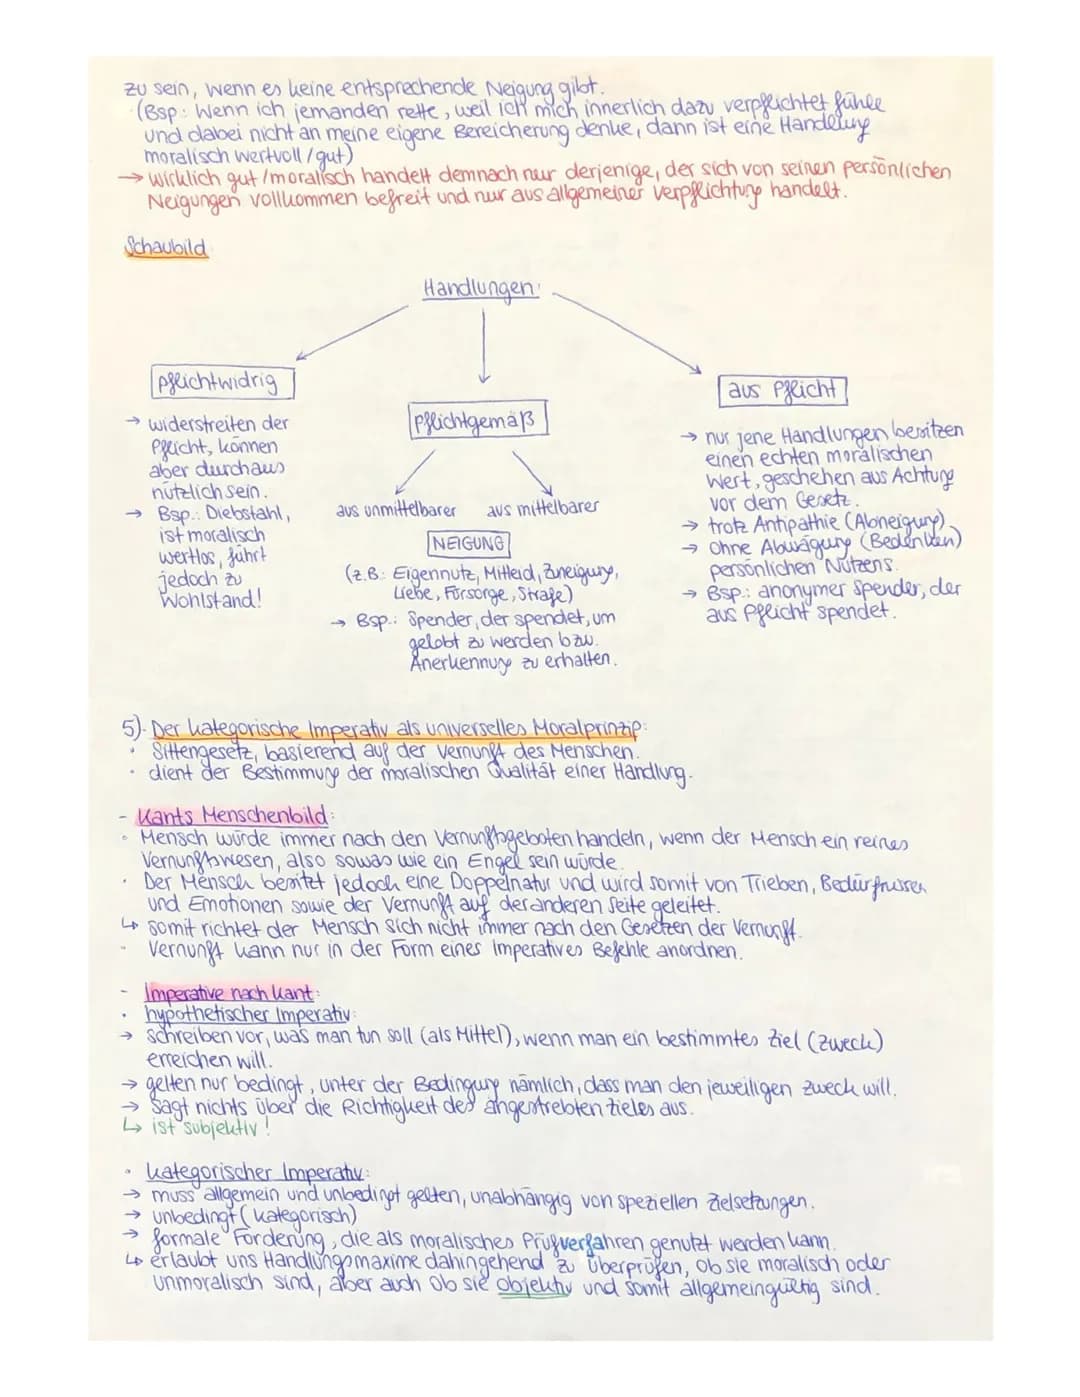 zu sein, wenn es keine entsprechende Neigung gibt.
(Bsp: Wenn ich jemanden rette, weil ich mich innerlich dazu verpflichtet fühle
und dabei nicht an meine eigene Bereicherung denke, dann ist eine Handlung
moralisch wertvoll/gut)
→ wirklich gut/moralisch handelt demnach nur derjenige, der sich von seinen persönlichen
Neigungen vollkommen befreit und nur aus allgemeiner Verpflichtung handelt.
Schaubild
Handlungen:
pflichtwidrig
→ widerstreiten der
Pflicht, können
aber durchaus
nützlich sein.
→ Bsp.: Diebstahl,
ist moralisch
wertlos, führt
jedoch zu
Wohlstand!
Pflichtgemäß
aus unmittelbarer aus mittelbarer
NEIGUNG
(z.B.: Eigennutz, Mitleid, Zuneigung,
Liebe, Fürsorge, Strafe)
→ Bsp.: Spender, der spendet, um
gelobt zu werden bzw.
Anerkennung zu erhalten.
aus Pflicht
→ nur jene Handlungen besitzen
einen echten moralischen
Wert, geschehen aus Achtung
vor dem Gesetz.
→ trotz Antipathie (Abneigung)
→ Ohne Abwägung (Bedenken)
persönlichen Nutzens.
→ Bsp.: anonymer Spender, der
aus Pflicht spendet.
5). Der kategorische Imperativ als universelles Moralprinzip:
• Sittengesetz, basierend auf der Vernunft des Menschen.
• dient der Bestimmung der moralischen Qualität einer Handlung.
- Kants Menschenbild:
• Mensch würde immer nach den Vernunftsgeboten handeln, wenn der Mensch ein reines
Vernunftswesen, also sowas wie ein Engel sein würde.
• Der Mensch besitzt jedoch eine Doppelnatur und wird somit von Trieben, Bedürfnissen
und Emotionen sowie der Vernunft auf der anderen Seite geleitet.
↳ somit richtet der Mensch sich nicht immer nach den Gesetzen der Vernunft.
• Vernunft kann nur in der Form eines Imperatives Befehle anordnen.
- Imperative nach Kant:
• hypothetischer Imperativ:
→ schreiben vor, was man tun soll (als Mittel), wenn man ein bestimmtes Ziel (Zweck)
erreichen will.
→ gelten nur bedingt, unter der Bedingung nämlich, dass man den jeweiligen Zweck will.
→ Sagt nichts über die Richtigkeit des angestrebten Zieles aus.
↳ ist subjektiv!
• kategorischer Imperativ:
→ muss allgemein und unbedingt gelten, unabhängig von speziellen Zielsetzungen.
→ unbedingt (kategorisch)
→ formale Forderung, die als moralisches Prüfverfahren genutzt werden kann.
↳ erlaubt uns Handlungsmaxime dahingehend zu überprüfen, ob sie moralisch oder
unmoralisch sind, aber auch ob sie objektiv und somit allgemeingültig sind.